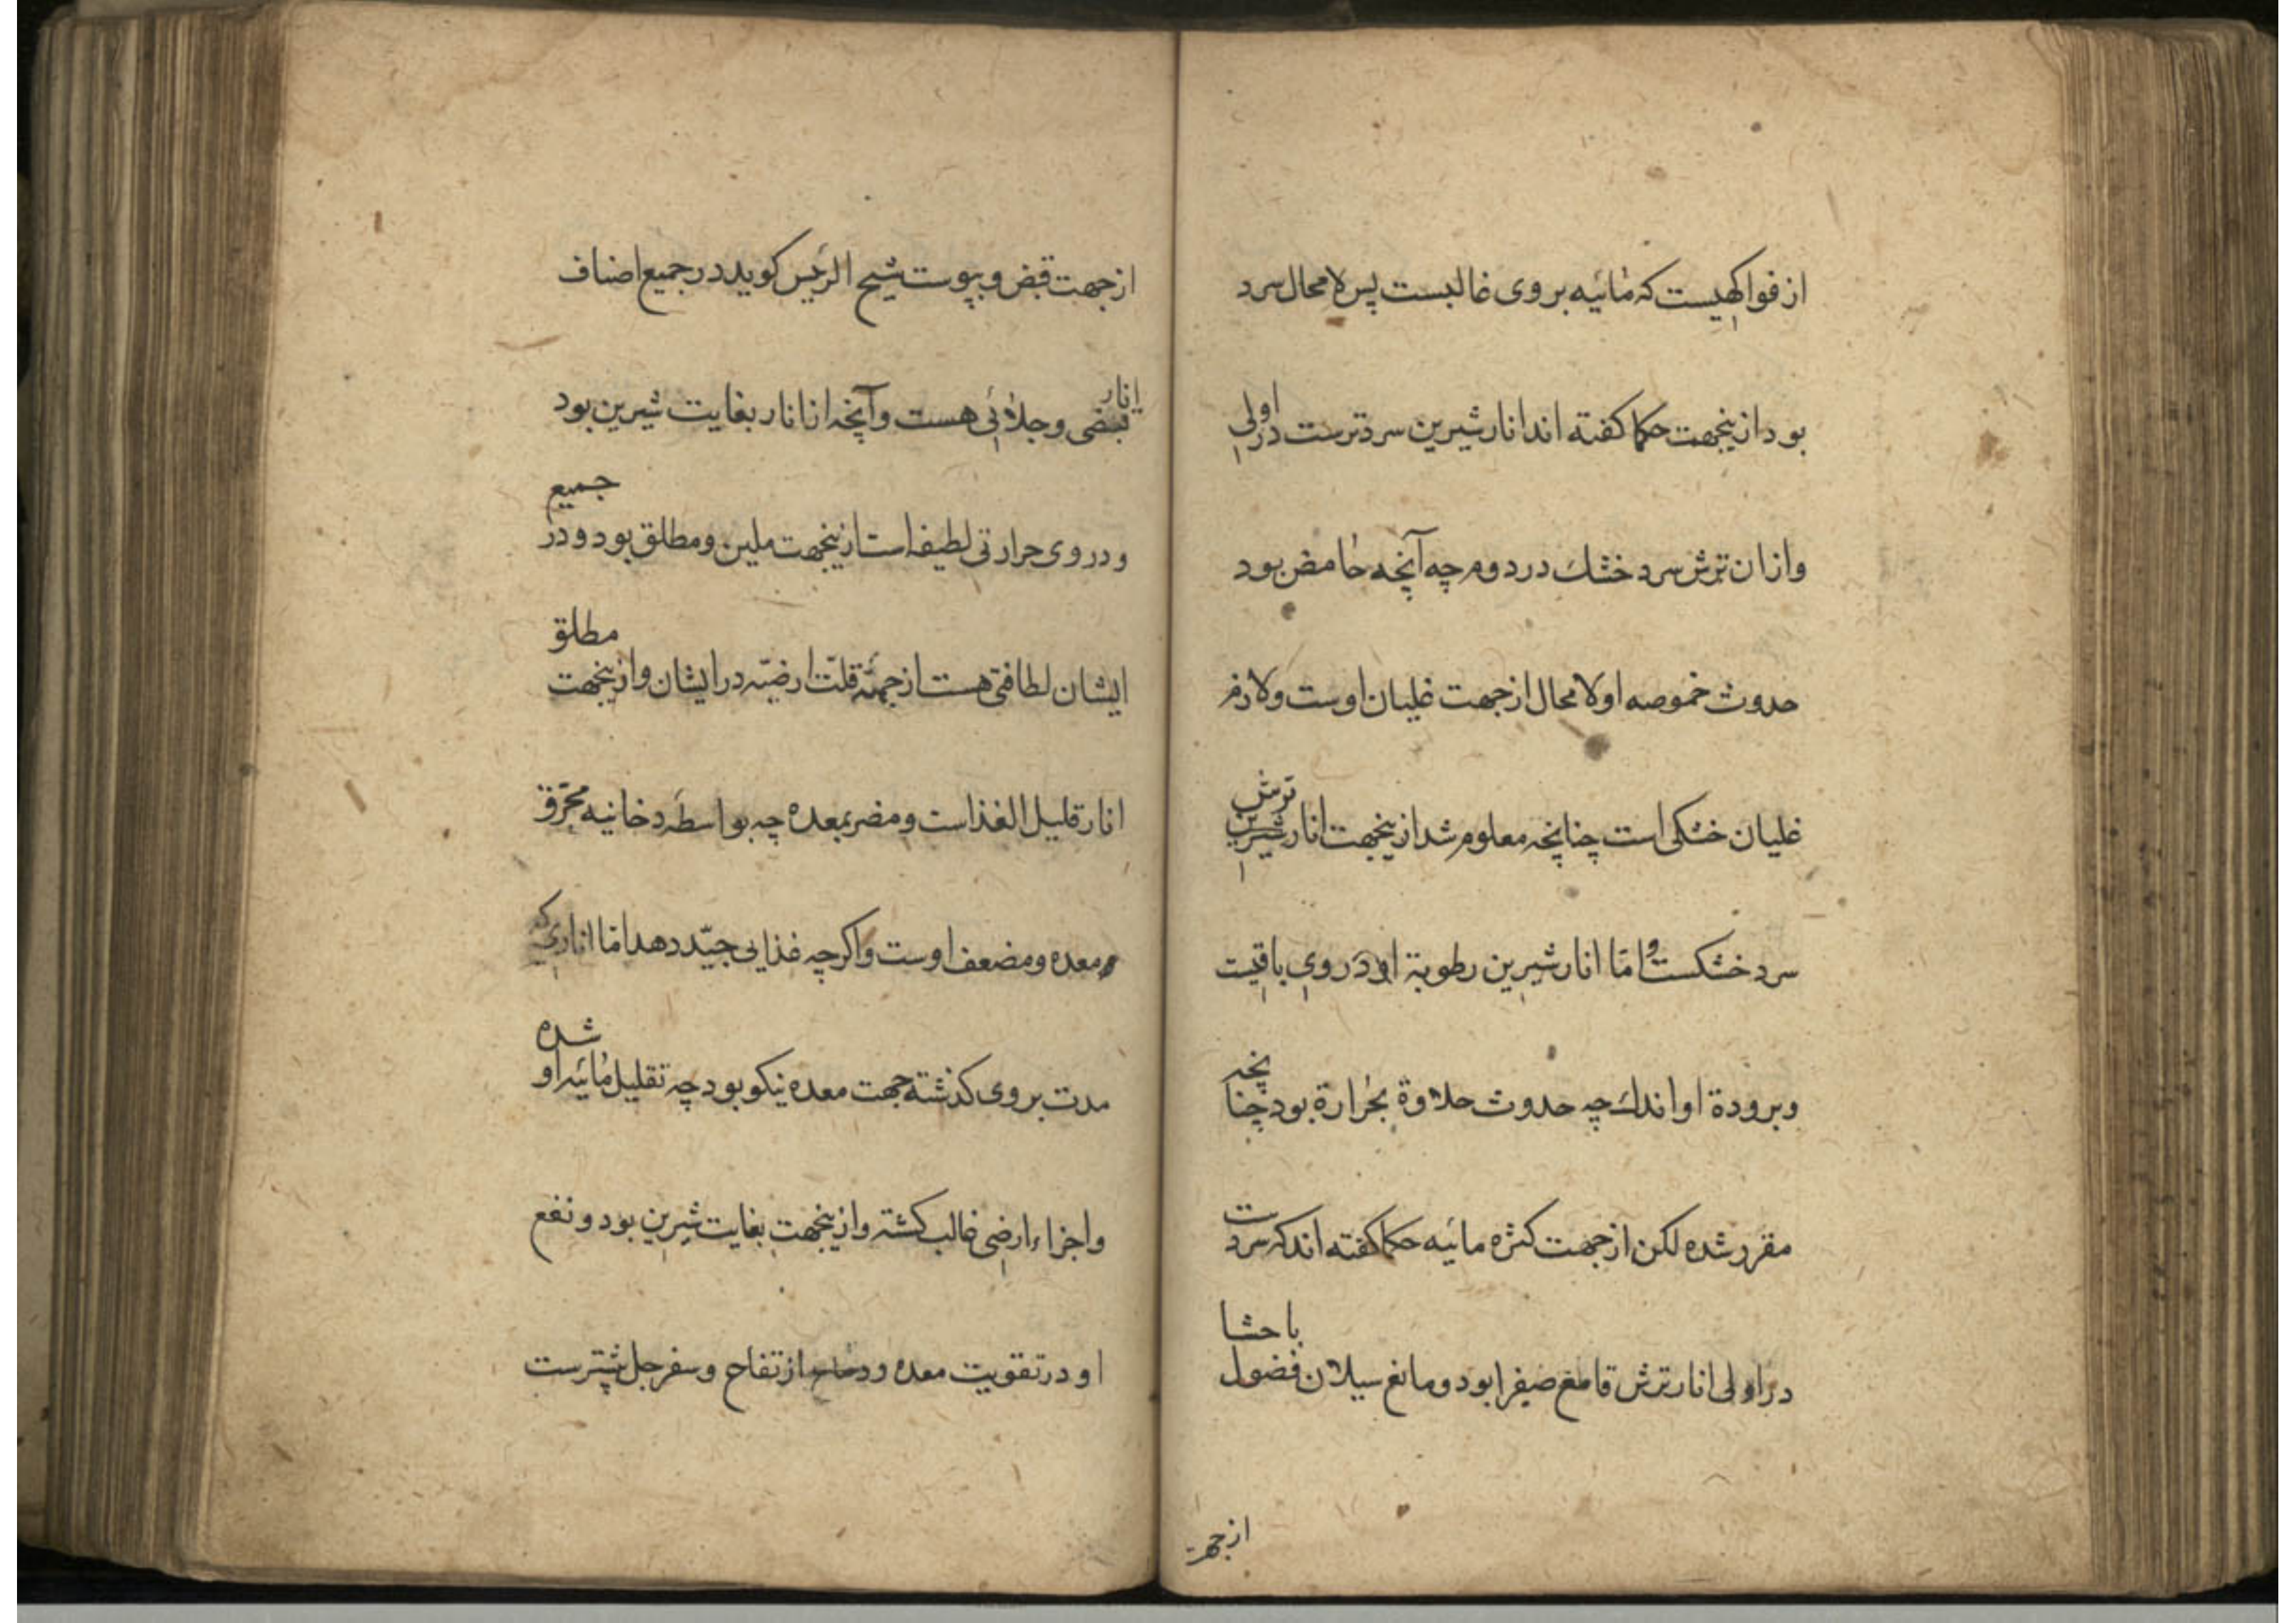 از فواکهیست که مائیه بر وی غالبست پس لا محال سرد
بود ازینجهت حکما کفته اند انار شیرین سرد ترست در اولی
و ازان ترش سرد خشک در دوم چه آنچه حامض بود
حدوث حموصه او لا محال از جهت غلیان اوست و لازم
غلیان خشکی است چنانچه معلوم شد ازینجهت انار شیرین ترش
سرد خشکست و امّا انار شیرین رطوبة او در وی باقیست
و برودة او اندک چه حدوث حلاوة بحرارة بود چنانچه
مقرر شده لکن از جهت کثرة مائیه حکما کفته اند که سردست
در اولی انار ترش قامع صفرا بود و مانع سیلان فضول باحشا
از جهت
از جهت قبض و یبوست شیخ الرئیس کوید در جمیع اصناف
انار قبضی و جلائی هست و آنچه از انار بغایت شیرین بود
و در وی حرارتی لطیفه است ازینجهت ملین و مطلق بود و در جمیع
ایشان لطافتی هست از جهة قلّت ارضیّه در ایشان و ازینجهت مطلق
انار قلیل الغذاست و مضر بمعده چه بواسطه دخانیه محرّق
معده و مضعف اوست و اکرچه غذایی جیّد دهد امّا اناری که
مدت بر وی کذشته جهت معده نیکو بود چه تقلیل مائیه او شده
و اجزاء ارضی غالب کشته و ازینجهت بغایت شیرین بود و نفع
او در تقویت معده از تفاح و سفرجل بیشترست